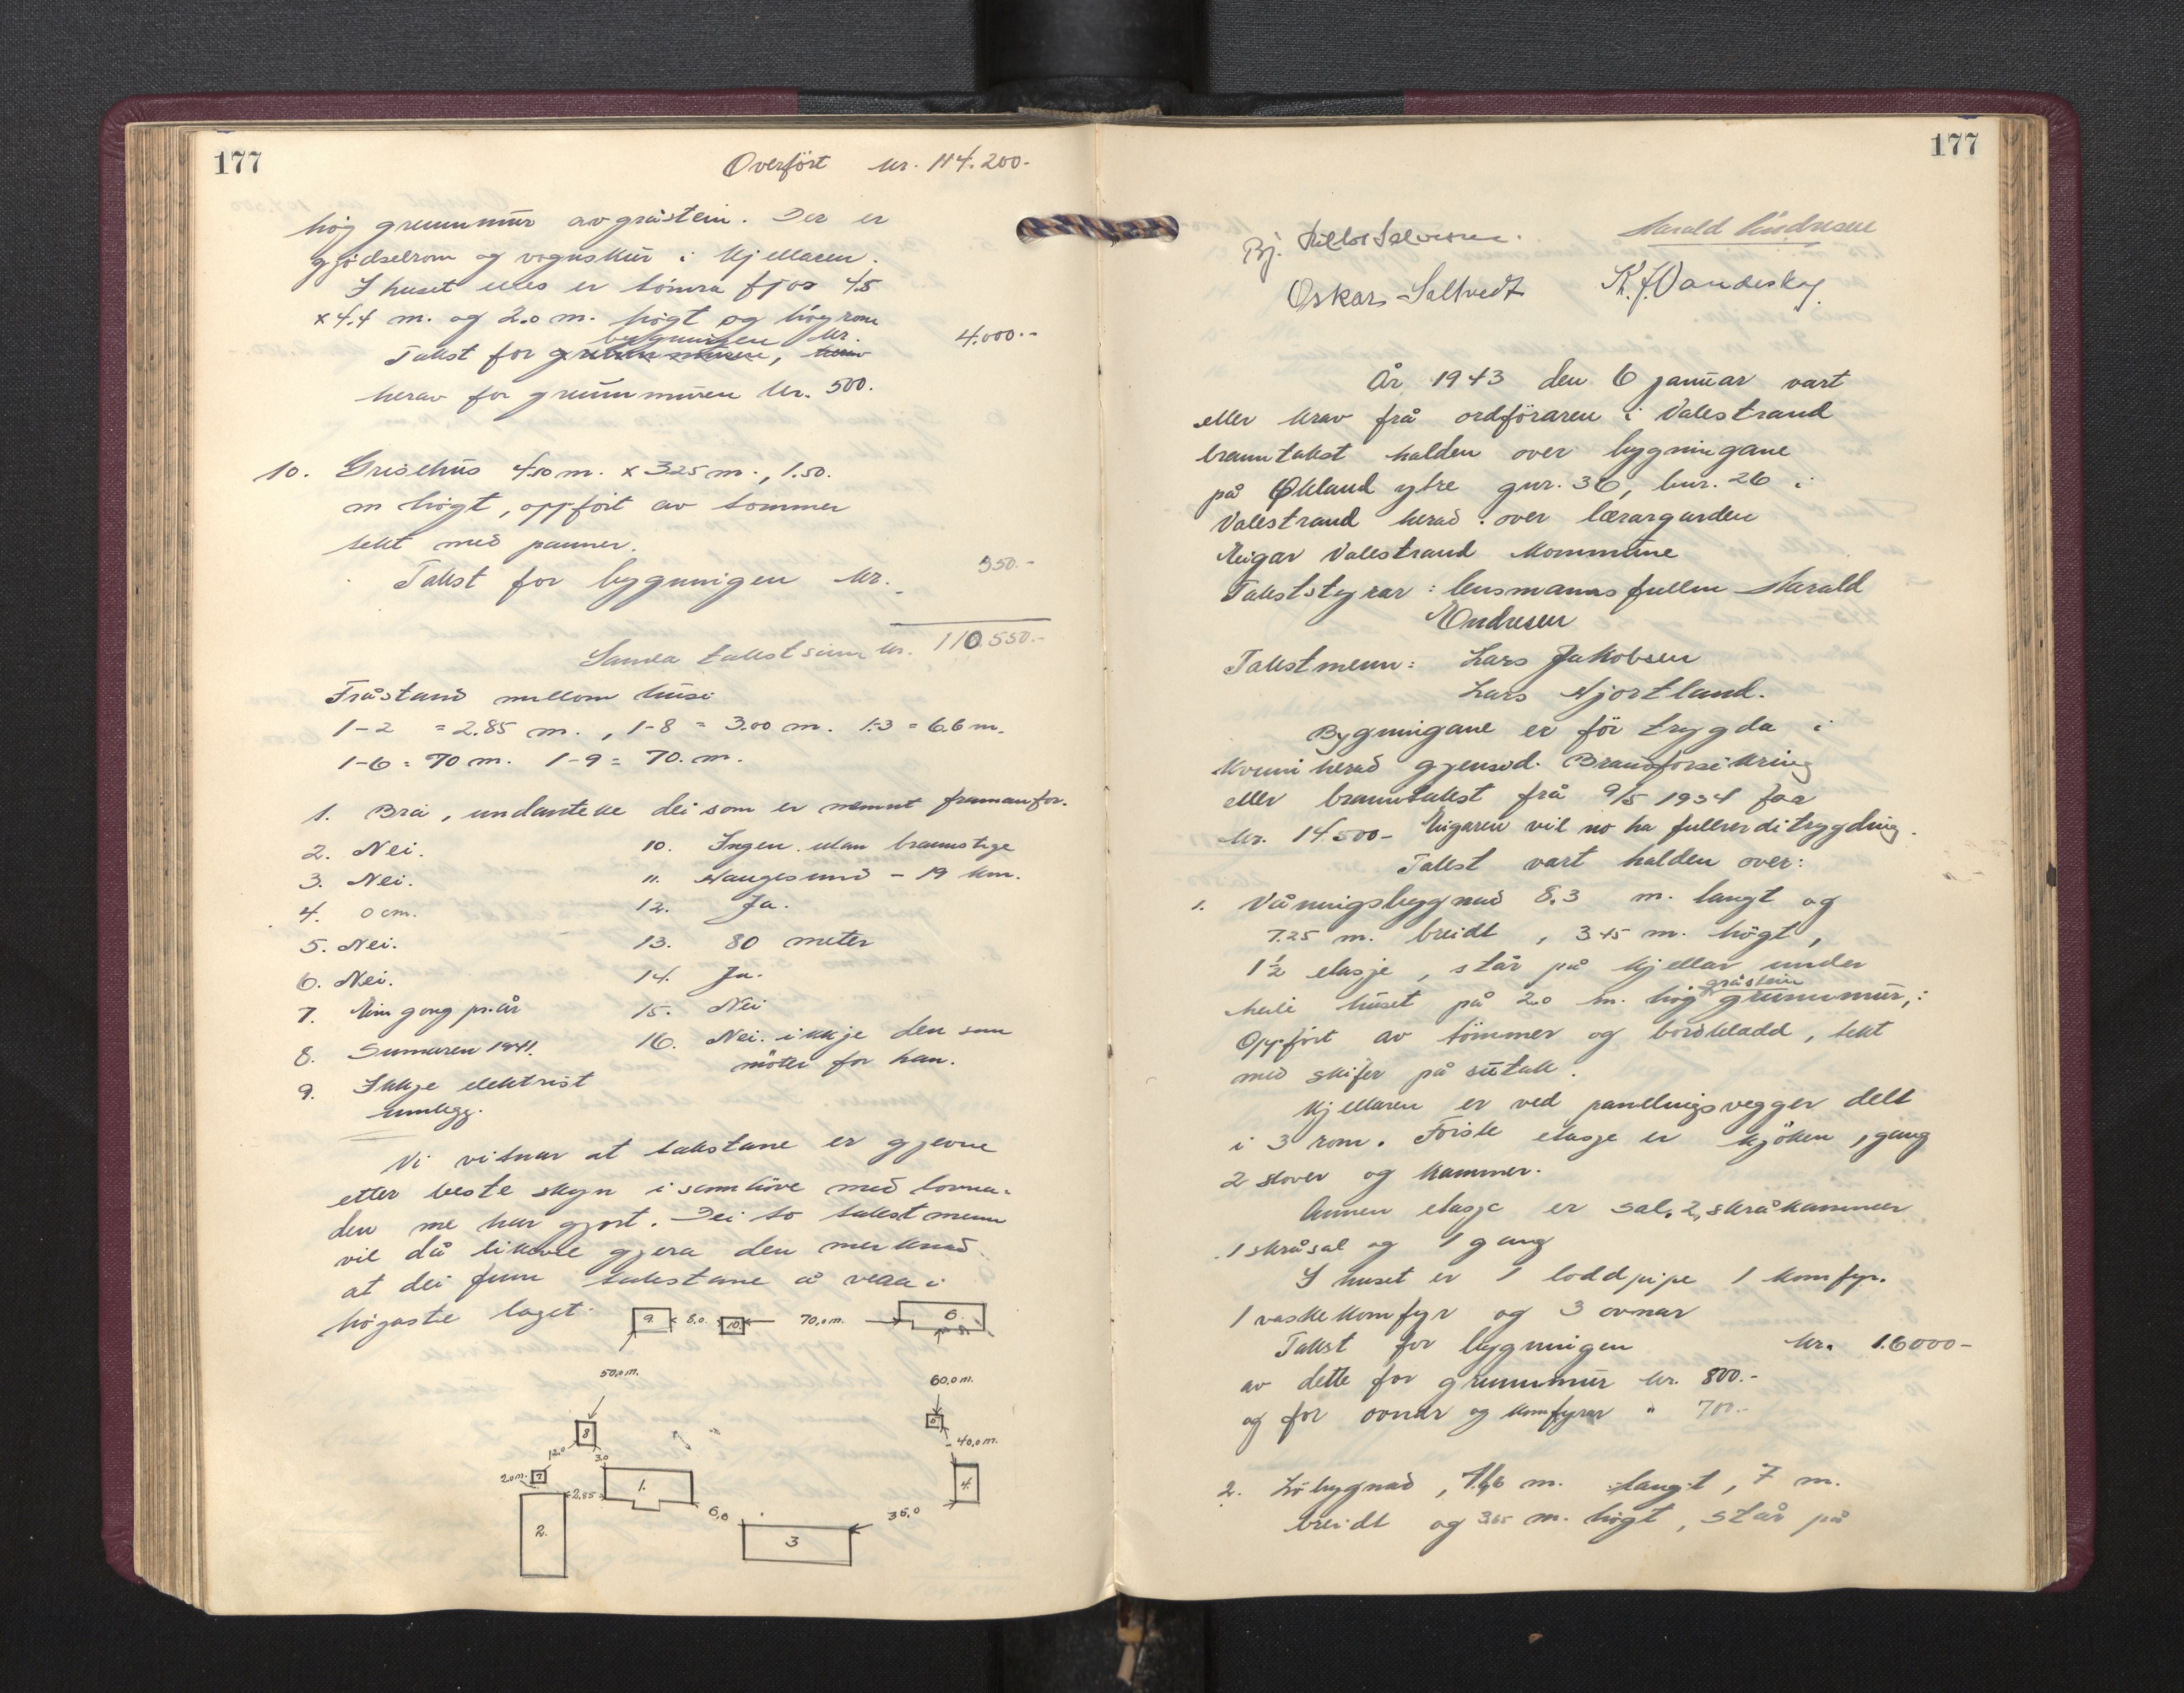 177
Overført kr. 114.200.-
høg grunnmur av gråstein. Der er
gjødselrom og vognskur i kjellaren.
I huset elles er tømra fjos 4.5
x 4.4 m. og 2.0 m. høgt og högrom
bygningen kr.
Takst for grunnmuren, herav 4.000.--
herav for grunnmuren kr. 500.
10. Grisehus 4.50 m. x 3.25 m., 1.50.
m høgt, oppført av tømmer
tekt med panner.
Takst for bygningen kr. 350.-
Samla takstsum kr. 110.550.-
Fråstand millom husi
1-2 = 2.85 m., 1-8 = 3.00 m. 1-3 = 6.6 m.
1-6 = 70 m. 1-9 = 70. m.
1. Bra, undanteke dei som er nemnt framanfor.
2. Nei.
3. Nei.
4. 0 cm.
5. Nei.
6. Nei.
7. Ein gong pr. år
8. Sumaren 1941.
9. Ikkje elektrist
innlegg.
10. Ingen utan brannstige
11. Haugesund - 19 km.
12. Ja.
13. 80 meter
14. Ja.
15. Nei
16. Nei. ikkje den som
møter for han.
Vi vitnar at takstane er gjevne
etter beste skyn i samhøve med lovna-
den me har gjort. Dei to takstmenn
vil då likevel gjera den merknad
at dei finn takstane å vera i
høgaste laget.
9. 8,0 10. 70,0 m. 6.
50,0 m. 60,0 m.
8 5
12,0 3,0 40,0 m.
2,0 m. 7 1. 4.
2,85 6,6 36,0
2. 3
177
Harald Endresen
Oskar Saltvedt K. J. Vandeskog
År 1943 den 6 januar vart
etter krav frå ordføraren i Valestrand
branntakst halden over bygningane
på Økland ytre gnr. 36, bnr. 26 i
Valestrand herad: over lærargarden
Eigar Valestrand kommune
Takststyrar: lensmannsfullm Harald
Endresen
Takstmenn: Lars Jakobsen
Lars Hjortland.
Bygningane er før trygda i
herad gjensid. Brandforsikring
etter branntakst frå 9/5 1934 for
kr. 14500- Eigaren vil no ha fullverditrygding.
Takst vart halden over:
1. Våningsbygnad 8.3 m. langt og
7.25 m. breidt, 3.45 m. høgt,
1 1/2 etasje, står på kjellar under
gråstein
heile huset på 2.0 m. høg grunnmur,
Oppført av tømmer og bordkledd, tekt
med skifer på sutak.
Kjellaren er ved panelingsvegger delt
i 3 rom. Første etasje er kjøken, gang
2 stover og kammer.
Annen etasje er sal, 2 skråkammer
1 skråsal og 1 gang
I huset er 1 loddpipe 1 komfyr.
1 vaskekomfyr og 3 ovnar
Takst for bygningen kr. 16000-
av dette for grunnmur kr. 800.-
og for ovnar og komfyrar " 700.-
2. Løbygnad, 16,6 m. langt, 7 m.
breidt og 3.65 m. høgt, står på